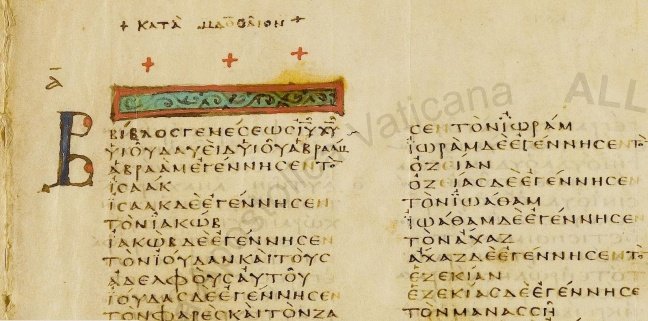 + ΚΑΤΑ ΜΑΘΘΑΙΟΝ +
Α
ΒΙΒΛΟΣ ΓΕΝΕΣΕΩΣ ΙΥ ΧΥ
ΥΙΟΥ ΔΑΥΕΙΔ ΥΙΟΥ ΑΒΡΑΑΜ
ΑΒΡΑΑΜ ΕΓΕΝΝΗΣΕΝ ΤΟ
ΙΣΑΑΚ
ΙΣΑΑΚ ΔΕ ΕΓΕΝΝΗΣΕΝ
ΤΟΝ ΙΑΚΩΒ
ΙΑΚΩΒ ΔΕ ΕΓΕΝΝΗΣΕΝ
ΤΟΝ ΙΟΥΔΑΝ ΚΑΙ ΤΟΥΣ
ΑΔΕΛΦΟΥΣ ΑΥΤΟΥ
ΙΟΥΔΑΣ ΔΕ ΕΓΕΝΝΗΣΕΝ
ΤΟΝ ΦΑΡΕΣ ΚΑΙ ΤΟΝ ΖΑ
ΣΕΝ ΤΟΝ ΙΩΡΑΜ
ΙΩΡΑΜ ΔΕ ΕΓΕΝΝΗΣΕΝ ΤΟ
ΟΖΕΙΑΝ
ΟΖΕΙΑΣ ΔΕ ΕΓΕΝΝΗΣΕΝ
ΤΟΝ ΙΩΑΘΑΜ
ΙΩΑΘΑΜ ΔΕ ΕΓΕΝΝΗΣΕΝ
ΤΟΝ ΑΧΑΖ
ΑΧΑΖ ΔΕ ΕΓΕΝΝΗΣΕΝ ΤΟ
ΕΖΕΚΙΑΝ
ΕΖΕΚΙΑΣ ΔΕ ΕΓΕΝΝΗΣΕ
ΤΟΝ ΜΑΝΑΣΣΗ
Vaticana
ALL